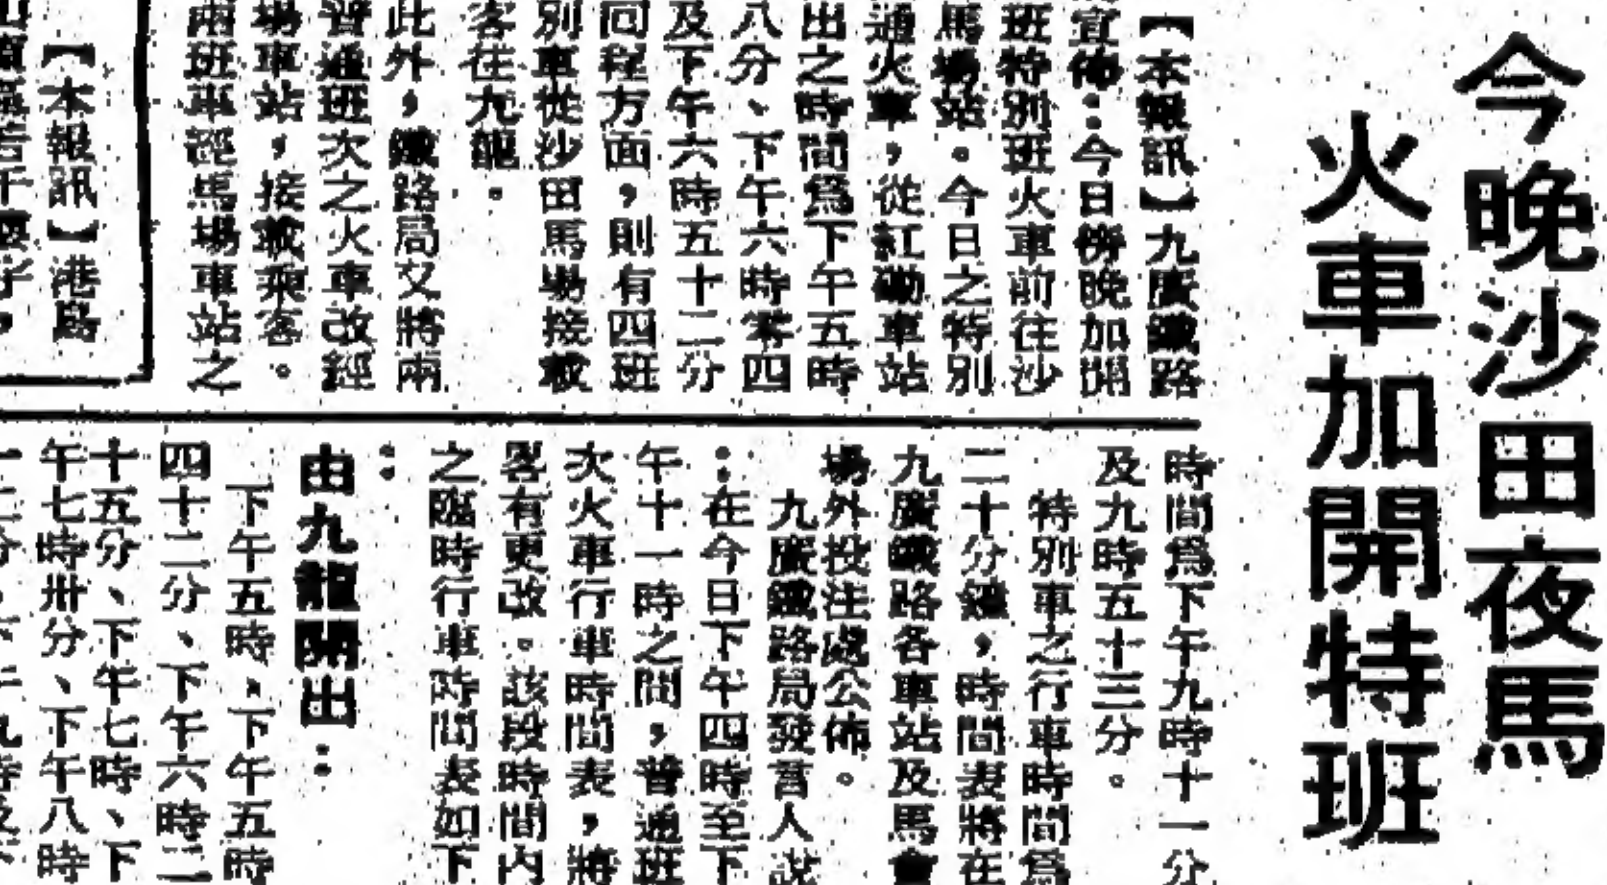 今晚沙田夜馬
火車加開特班
【本報訊】九廣鐵路
宣佈：今日傍晚加開
班特別班火車前往沙
馬場站。今日之特別
通火車，從紅磡車站
出之時間爲下午五時
八分、下午六時零四
及下午六時五十二分
回程方面，則有四班
別車從沙田馬場接載
客往九龍。
此外，鐵路局又將兩
普通班次之火車改經
場車站，接載乘客。
兩班車經馬場車站之
時間爲下午九時十一分
及九時五十三分。
特別車之行車時間爲
二十分鐘，時間表將在
九廣鐵路各車站及馬會
場外投注處公佈。
九廣鐵路局發言人說
：在今日下午四時至下
午十一時之間，普通班
次火車行車時間表，將
畧有更改。該段時間內
之臨時行車時間表如下
：
由九龍開出：
下午五時、下午五時
四十二分、下午六時二
十五分、下午七時、下
午七時卅分、下午八時
【本報訊】港島